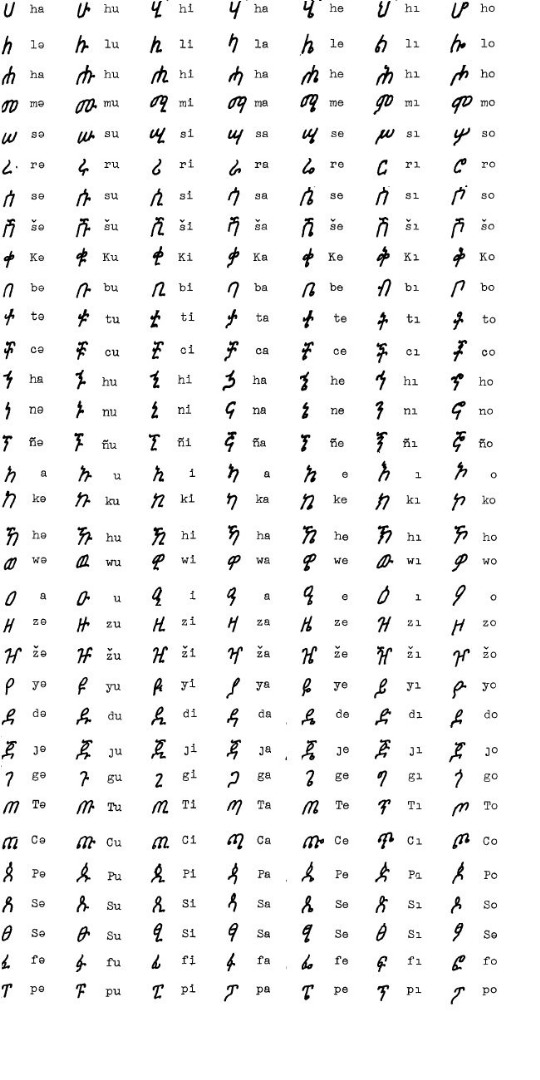 ሀ ha ሁ hu ሂ hi ሃ ha ሄ he ህ hı ሆ ho
ለ lə ሉ lu ሊ li ላ la ሌ le ል lı ሎ lo
ሐ ha ሑ hu ሒ hi ሓ ha ሔ he ሕ hı ሖ ho
መ mə ሙ mu ሚ mi ማ ma ሜ me ም mı ሞ mo
ሠ sə ሡ su ሢ si ሣ sa ሤ se ሥ sı ሦ so
ረ rə ሩ ru ሪ ri ራ ra ሬ re ር rı ሮ ro
ሰ sə ሱ su ሲ si ሳ sa ሴ se ስ sı ሶ so
ሸ šə ሹ šu ሺ ši ሻ ša ሼ še ሽ šı ሾ šo
ቀ Kə ቁ Ku ቂ Ki ቃ Ka ቄ Ke ቅ Kı ቆ Ko
በ bə ቡ bu ቢ bi ባ ba ቤ be ብ bı ቦ bo
ተ tə ቱ tu ቲ ti ታ ta ቴ te ት tı ቶ to
ቸ cə ቹ cu ቺ ci ቻ ca ቼ ce ች cı ቾ co
ኀ ha ኁ hu ኂ hi ኃ ha ኄ he ኅ hı ኆ ho
ነ nə ኑ nu ኒ ni ና na ኔ ne ን nı ኖ no
ኘ ñə ኙ ñu ኚ ñi ኛ ña ኜ ñe ኝ ñı ኞ ño
አ a ኡ u ኢ i ኣ a ኤ e እ ı ኦ o
ከ kə ኩ ku ኪ ki ካ ka ኬ ke ክ kı ኮ ko
ኸ hə ኹ hu ኺ hi ኻ ha ኼ he ኽ hı ኾ ho
ወ wə ዉ wu ዊ wi ዋ wa ዌ we ው wı ዎ wo
ዐ a ዑ u ዒ i ዓ a ዔ e ዕ ı ዖ o
ዘ zə ዙ zu ዚ zi ዛ za ዜ ze ዝ zı ዞ zo
ዠ žə ዡ žu ዢ ži ዣ ža ዤ že ዥ žı ዦ žo
የ yə ዩ yu ዪ yi ያ ya ዬ ye ይ yı ዮ yo
ደ də ዱ du ዲ di ዳ da ዴ de ድ dı ዶ do
ጀ ȷə ጁ ȷu ጂ ȷi ጃ ȷa ጄ ȷe ጅ ȷı ጆ ȷo
ገ gə ጉ gu ጊ gi ጋ ga ጌ ge ግ gı ጎ go
ጠ Tə ጡ Tu ጢ Ti ጣ Ta ጤ Te ጥ Tı ጦ To
ጨ Cə ጩ Cu ጪ Ci ጫ Ca ጬ Ce ጭ Cı ጮ Co
ጰ Pə ጱ Pu ጲ Pi ጳ Pa ጴ Pe ጵ Pı ጶ Po
ጸ Sə ጹ Su ጺ Si ጻ Sa ጼ Se ጽ Sı ጾ So
ፀ Sə ፁ Su ፂ Si ፃ Sa ፄ Se ፅ Sı ፆ Sə
ፈ fə ፉ fu ፊ fi ፋ fa ፌ fe ፍ fı ፎ fo
ፐ pə ፑ pu ፒ pi ፓ pa ፔ pe ፕ pı ፖ po